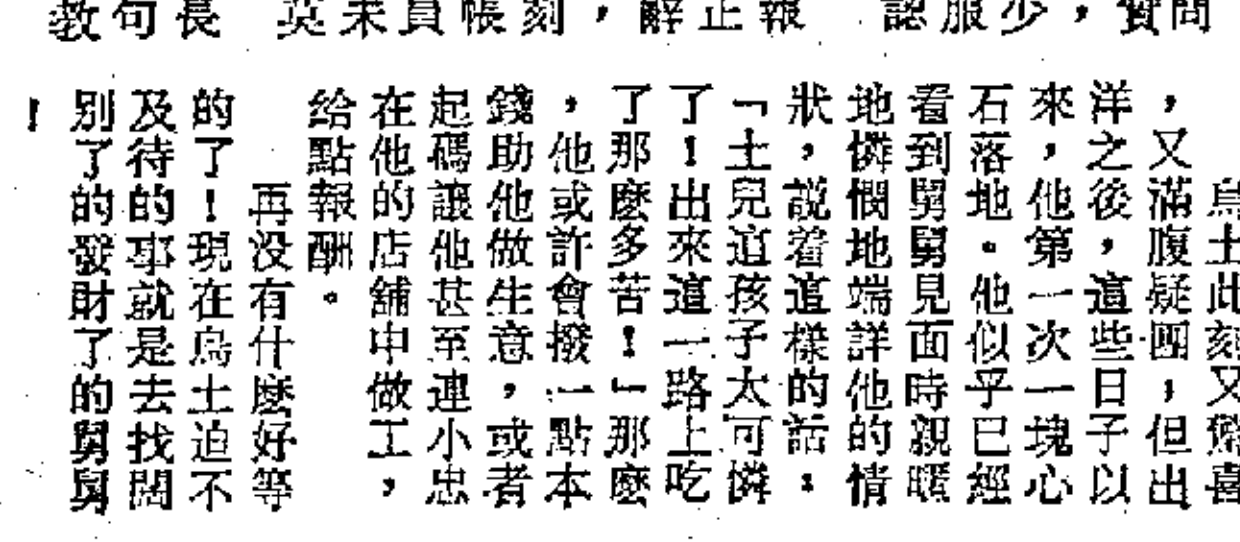 烏土此刻又驚喜
，又滿腹疑團，但出
洋之後，這些日子以
來，他第一次一塊心
石落地。他似乎已經
看到舅舅見面時親暱
地憐憫地端詳他的情
狀，説着這樣的話：
「土兒這孩子太可憐
了！出來這一路上吃
了那麼多苦！」那麼
，他或許會撥一點本
錢助他做生意，或者
起碼讓他甚至連小忠
在他的店舖中做工，
給點報酬。
再没有什麼好等
的了！現在烏土迫不
及待的事就是去找闊
别了的發財了的舅舅
！